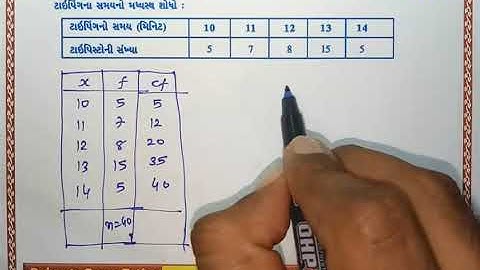 ટાઇપિંગના સમયનો મધ્યસ્થ શોધો :
ટાઇપિંગનો સમય (મિનિટ) 10 11 12 13 14
ટાઇપિસ્ટોની સંખ્યા 5 7 8 15 5
x f cf
10 5 5
11 7 12
12 8 20
13 15 35
14 5 40
n=40
OHP